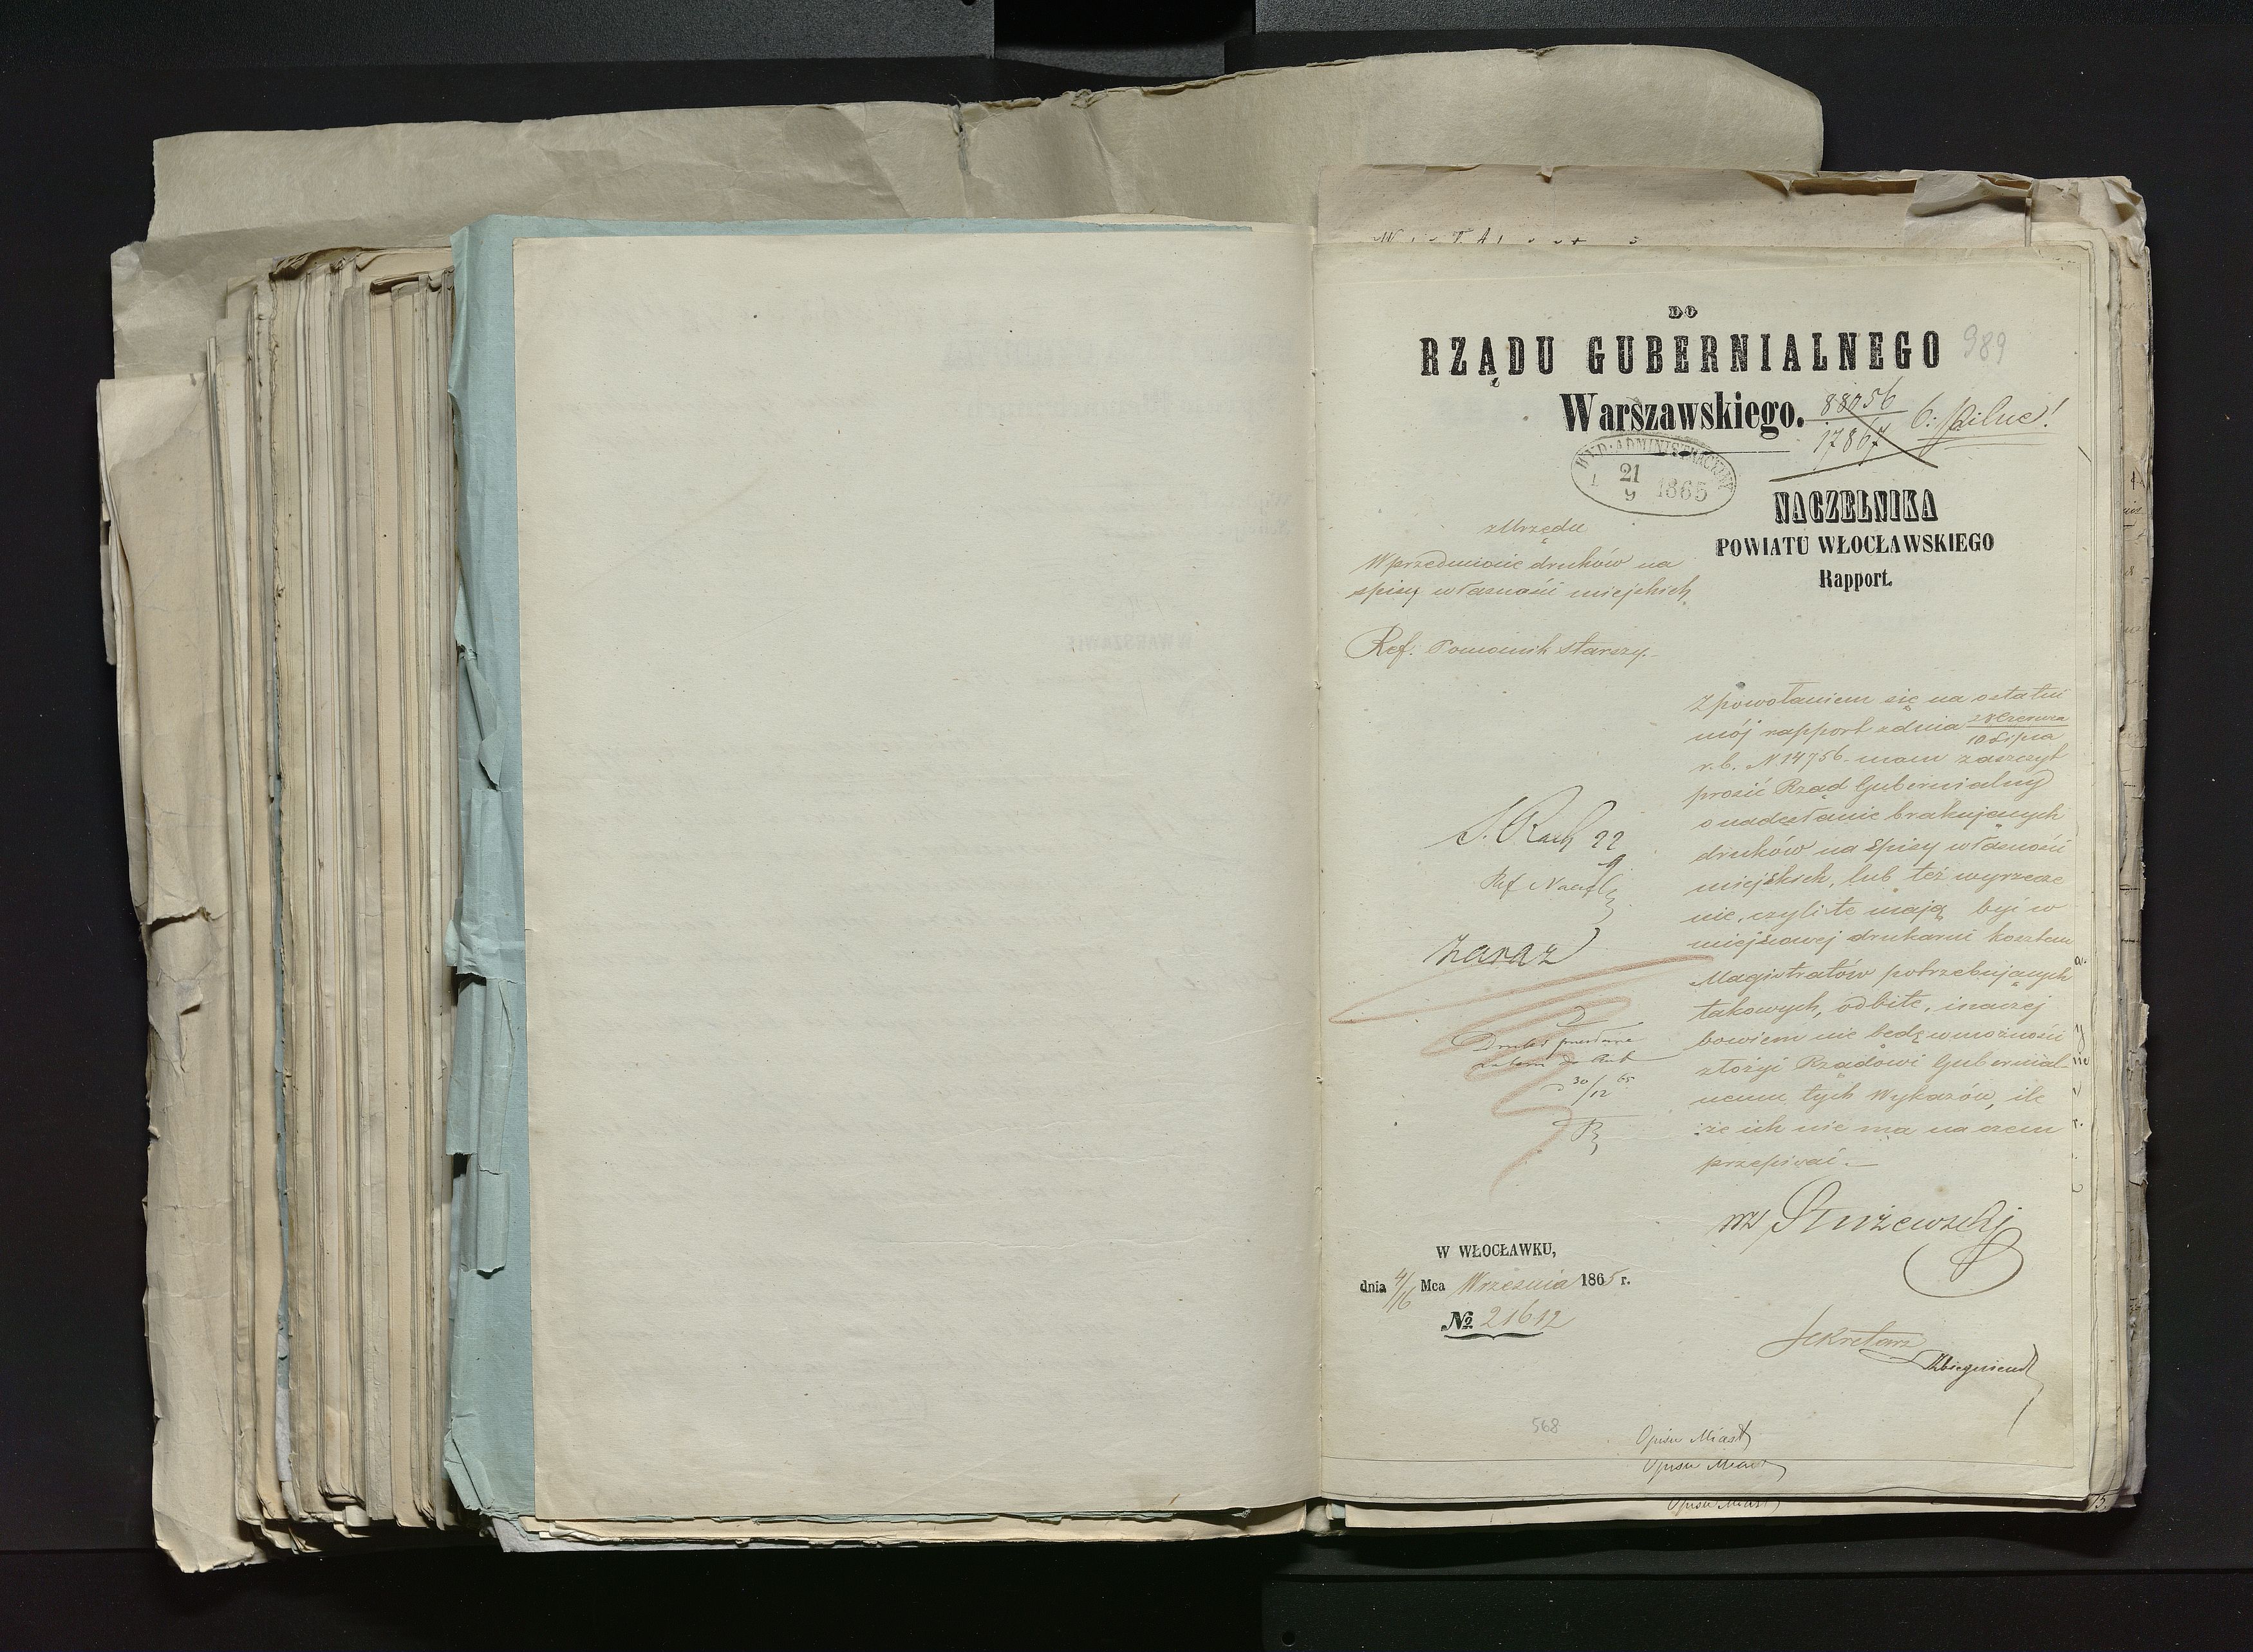 DO
RZĄDU GUBERNIALNEGO
989
Warszawskiego.
88056
17867
b: pilne!
WYD: ADMINISTRACYJNY
21
9
1865
NACZELNIKA
POWIATU WŁOCŁAWSKIEGO
Rapport.
z Urzędu
W przedmiocie druków na
spisy własności miejskich
Ref: Pomocnik starszy.
Z powołaniem się na ostatni
mój rapport z dnia 28 Czerwca
10 Lipca
r. b. N 14756 mam zaszczyt
prosić Rząd Gubernialny
o nadesłanie brakujących
druków na spisy własności
miejskich, lub też wyrzecze
nie, czyli te mają być w
miejscowej drukarni kosztem
Magistratów potrzebujących
takowych, odbite, inaczej
bowiem nie będę w możności
złożyć Rządowi Gubernial-
nemu tych Wykazów, ile
że ich nie ma na czem
przepisać.
zaraz
30/12 65
W WŁOCŁAWKU,
dnia 4/16 Mca Września 1865 r.
№ 21612
Sekretarz
568
Opisu Miast
Opisu Miast
Opisu Miast